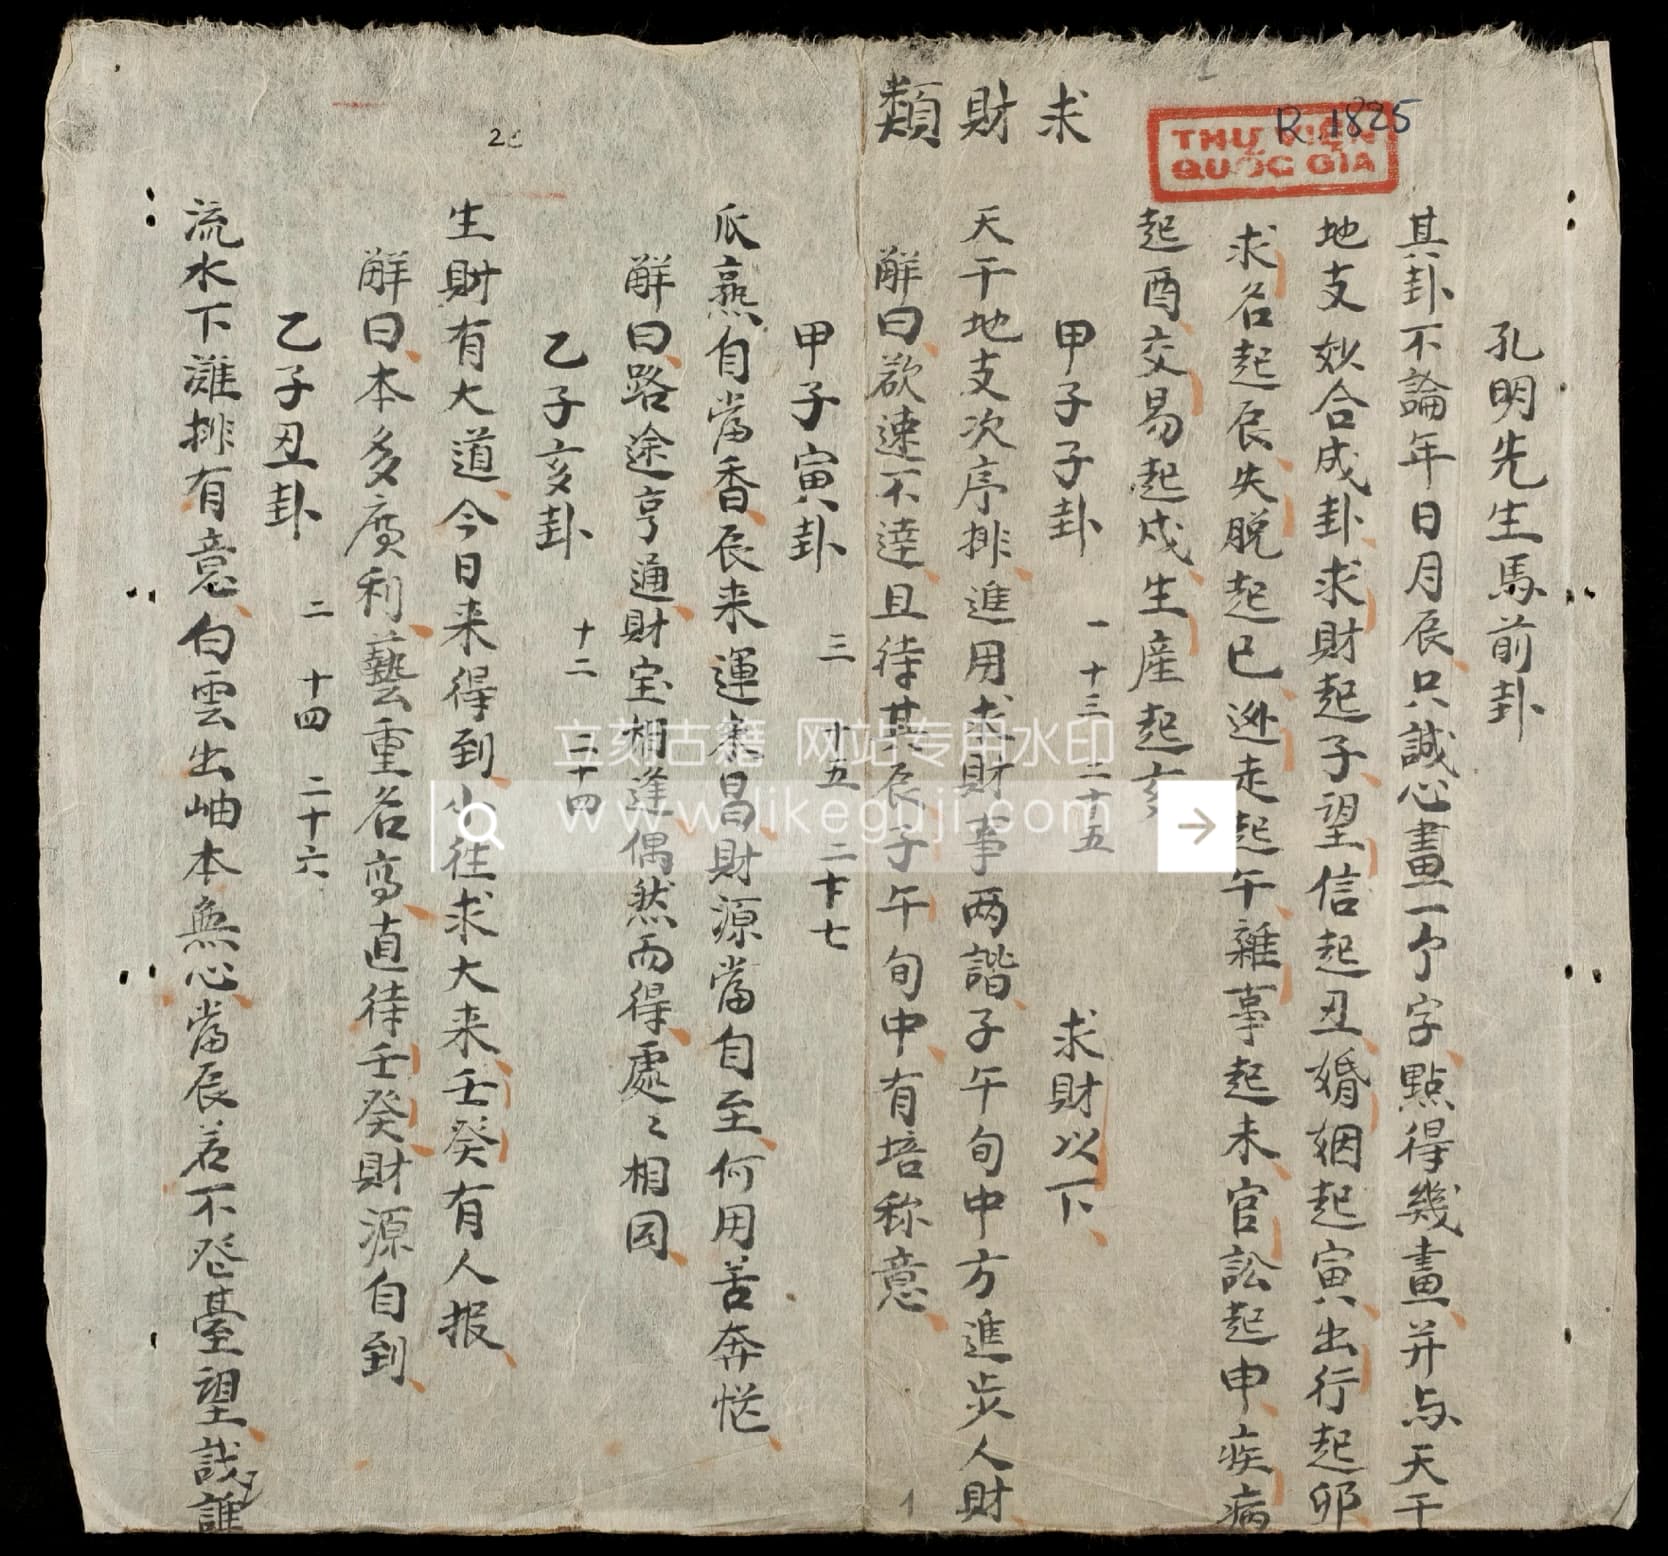 R.1825
THƯ VIỆN
QUỐC GIA
孔明先生馬前卦
其卦不論年日月辰只誠心畫一个字點得幾畫并与天干
地支妙合成卦求財起子望信起丑婚姻起寅出行起卯
求名起辰失脱起巳逃走起午雜事起未官訟起申疾病
起酉交易起戌生産起亥
求財類
甲子子卦 一 十三 二十五 求財以下
天干地支次序排進用求財事两諧子午旬中方進步人財
解曰欲速不達且待其辰子午旬中有培称意
甲子寅卦 三 十五 二十七
瓜熟自當香辰来運泰昌財源當自至何用苦奔忙
解曰路途亨通財宝相逢偶然而得處〻相同
乙子亥卦 十二 二十四
生財有大道今日来得到小往求大来壬癸有人报
解曰本多廣利藝重名高直待壬癸財源自到
乙子丑卦 二 十四 二十六
流水下灘排有意白雲出岫本無心當辰若不登臺望哉誰
26
1
立刻古籍 网站专用水印
www.likeguji.com